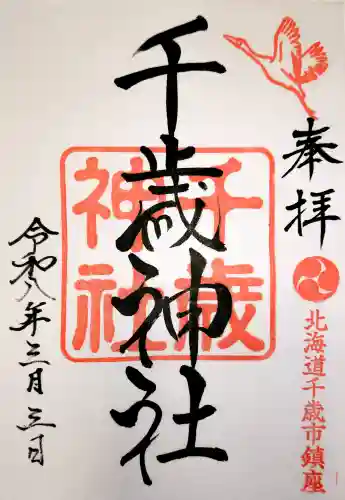 奉拝
北海道千歳市鎮座
千歳神社
千歳神社
令和八年三月三日